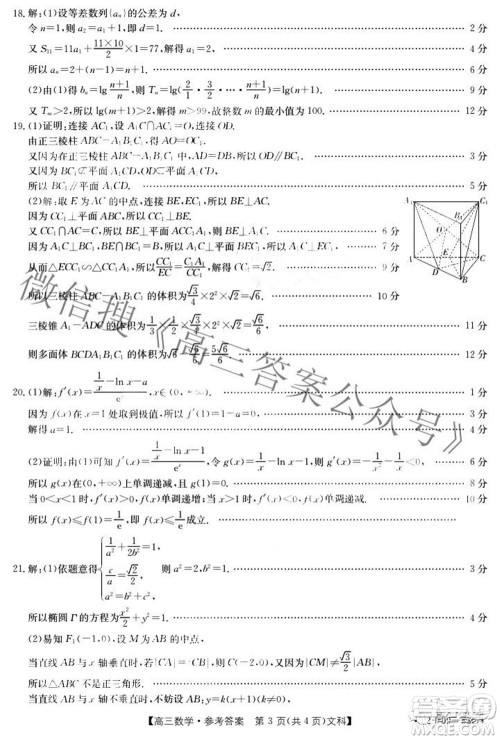 18.解:(1)设等差数列{aₙ}的公差为d,
令n=1,则 …… 2分
又S₁₁=11a₁+(11×10)/2×1=77,解得a₁=2. …… 4分
所以aₙ=2+(n-1)=n+1. …… 6分
(2)由(1)得bₙ=lg (n+1)/n,则Tₘ=lg(2/1·3/2·…·(m+1)/m)=lg(m+1). …… 9分
又Tₘ>2,所以lg(m+1)>2,解得m>99,故整数m的最小值为100. …… 12分
19.(1)证明:连接AC₁,设A₁C∩AC₁=O,连接OD.
由正三棱柱ABC-A₁B₁C₁,得AO=OC₁. …… 1分
又因为在正三棱柱ABC-A₁B₁C₁中,AD=DB,所以OD∥BC₁. …… 3分
又因为BC₁⊄平面A₁CD,OD⊂平面A₁CD,
所以BC₁∥平面A₁CD. …… 5分
(2)解:取E为AC的中点,连接BE,EC₁,所以BE⊥AC.
因为CC₁⊥平面ABC,所以CC₁⊥BE,
又AC∩CC₁=C,所以BE⊥平面ACC₁A₁,所以BE⊥A₁C. …… 6分
因为A₁C⊥BC₁,BE∩BC₁=B,所以A₁C⊥平面BEC₁,所以A₁C⊥EC₁. …… 8分
从而△ECC₁∽△CC₁A₁,所以CC₁/EC=C₁A₁/CC₁,所以CC₁=√2. …… 9分
所以三棱柱ABC-A₁B₁C₁的体积为√3/4×2²×√2=√6. …… 10分
三棱锥A₁-ADC的体积为1/3×1/2×√3/4×2²×√2=√6/6. …… 11分
则多面体BCDA₁B₁C₁的体积为√6-√6/6=5√6/6. …… 12分
A₁ C₁ B₁ O D B
20.(1)解:f′(x)=(1/x-ln x-a)/eˣ,x∈(0,+∞). …… 1分
因为f(x)在x=1处取到极值,所以f′(1)=0. …… 3分
解得a=1. …… 4分
(2)证明:由题可知f′(x)=(1/x-ln x-1)/eˣ,令g(x)=1/x-ln x-1,则g′(x)=-1/x²-1/x<0. …… 6分
所以g(x)在(0,+∞)上单调递减,且g(1)=0. …… 8分
当0<x<1时,f′(x)>0,f(x)单调递增;当x>1时,f′(x)<0,f(x)单调递减. …… 11分
所以f(x)≤f(1)=1/e,即f(x)≤1/e成立. …… 12分
21.解:(1)依题意得{1/a²+1/(2b²)=1, c/a=√2/2, 则a²=2,b²=1. …… 3分
所以椭圆Γ的方程为x²/2+y²=1. …… 4分
(2)易知F₁(-1,0),设M为AB的中点,
当直线AB与x轴垂直时,若|AC|=|BC|,则C在x轴上,又因为|CM|≠√3/2|AB|,
所以△ABC不是正三角形. …… 5分
当直线AB与x轴不垂直时,
【高三数学·参考答案 第3页(共4页)文科】
微信搜《高三答案公众号》